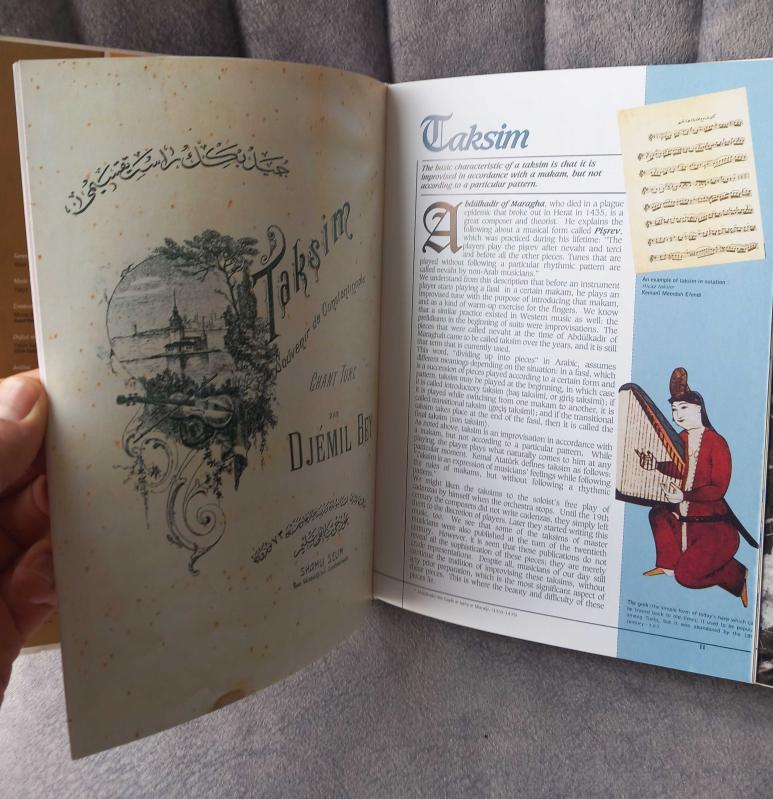 جمیل بك راست تقسیمی
Taksim
Souvenir de Constantinople
CHANT TURC
PAR
DJÉMIL BEY
SHAMLI SELIM
Taksim
The basic characteristic of a taksim is that it is
improvised in accordance with a makam, but not
according to a particular pattern.
Abdülkadir of Maragha, who died in a plague
epidemic that broke out in Herat in 1435, is a
great composer and theorist. He explains the
following about a musical form called Pişrev,
which was practiced during his lifetime: "The
players play the pişrev after nevaht and terci
and before all the other pieces. Tunes that are
played without following a particular rhythmic pattern are
called nevaht by non-Arab musicians."
We understand from this description that before an instrument
player starts playing a fasıl in a certain makam, he plays an
improvised tune with the purpose of introducing that makam,
and as a kind of warm-up exercise for the fingers. We know
that a similar practice existed in Western music as well: the
preldiums in the beginning of suites were improvisations. The
pieces that were called nevaht at the time of Abdülkadir of
Maragha came to be called taksim over the years, and it is still
that term that is currently used.
This word, "dividing up into pieces" in Arabic, assumes
different meanings depending on the situation: in a fasıl, which
is a succession of pieces played according to a certain form and
pattern, taksim may be played at the beginning, in which case
it is called introductory taksim (baş taksimi, or giriş taksimi); if
it is played while switching from one makam to another, it is
called transitional taksim (geçiş taksimi); and if the transitional
taksim takes place at the end of the fasıl, then it is called the
final taksim (son taksim).
As noted above, taksim is an improvisation in accordance with
a makam, but not according to a particular pattern. While
playing, the player plays what naturally comes to him at any
particular moment. Kemal Atatürk defines taksim as follows:
"Taksim is an expression of musicians' feelings while following
the rules of makams, but without following a rhythmic
pattern."
We might liken the taksims to the soloist's free play of
cadenzas by himself when the orchestra stops. Until the 19th
century the composers did not write cadenzas, they simply left
them to the discretion of players. Later they started writing this
music, too. We see that some of the taksims of master
musicians were also published at the turn of the twentieth
century. However, it is seen that these publications do not
reveal all the sophistication of these pieces; they are merely
crude representations. Despite all, musicians of our day still
continue the tradition of improvising these taksims, without
any prior preparation, which is the most significant aspect of
these pieces. This is where the beauty and difficulty of these
pieces lie.
An example of taksim in notation
Hicaz taksim
Kemani Memduh Efendi
The çenk (the simple form of today's harp which
be traced back to old times; it used to be
among Turks, but it was abandoned by the
century
11